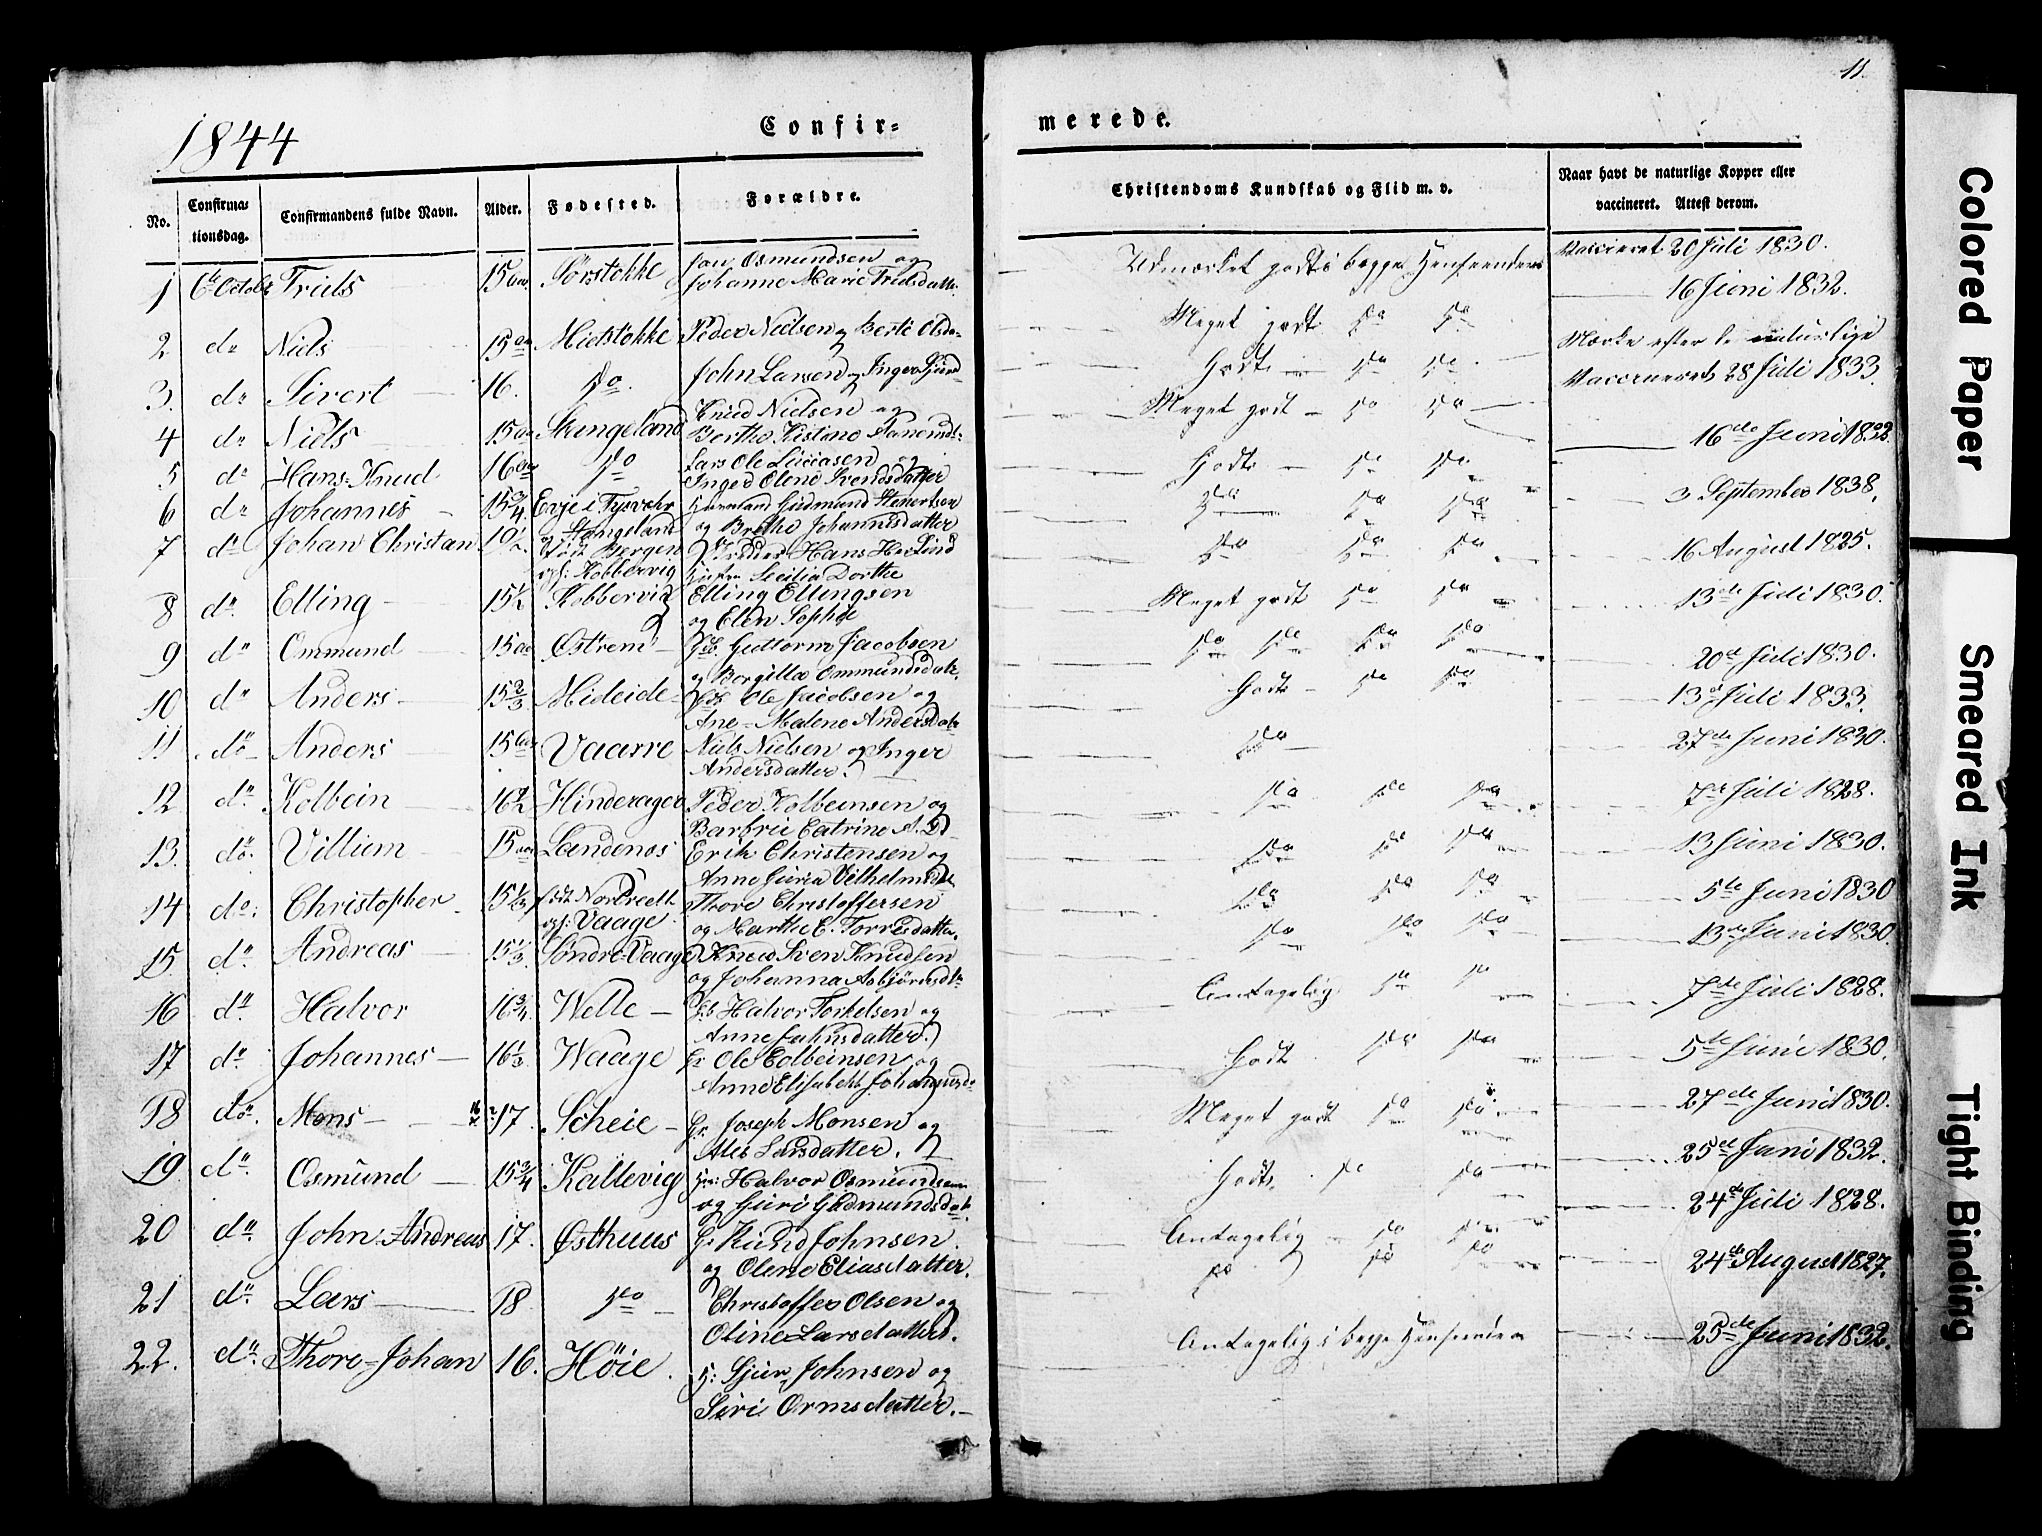 11.
1844
Confir-
merede.
No.
Confirma-
tionsdag.
Confirmandens fulde Navn.
Alder.
Fødested.
Forældre.
Christendoms Kundskab og Flid m. v.
Naar havt de naturlige Kopper eller
vaccineret. Attest derom.
1 6te Octobr Truls 15 aar Sørstokke Jon Osmundsen og
Johanne Marie Trulsdatter Udmærket godt i begge Henseender Vaccineret 20 Juli 1830.
2 do Niels 15 aar Midtstokke Peder Nielsen og Berte Olsda- Meget godt do do 16 Juni 1832.
3. do Sivert 16. do John Larsen og Inger Godt do do Mærke efter de naturlige
4 do Niels 15 aar Stangeland Knud Nielsen og
Berthe Kistine Meget godt do do Vaccineret 28 Juli 1833.
5 do Hans-Knud 16 aar do Lars Ole Luciasen og
Inged Elene Svendsdatter Godt do do 16de Juni 1832.
6 do Johannes 15 3/4 Evje i Tysvær
og Stangeland Gudmund
og Brethe Johannisdatter do do do 3 September 1838.
7 do Johan Christian 19 1/2 født Bergen
opf: Kobbervig Hans
Cecilia Dorthe do do do 16 August 1825.
8 do Elling 15 1/2 Kobbervig Elling Ellingsen
og Elen Sophie Meget godt do do 13de Juli 1830.
9 do Ommund 15 aar Østrem Gb. Guttorm Jacobsen
og Borgilla Ommundsdatr. do do do do 20de Juli 1830.
10 do Anders 15 2/3 Mideide Ole Jacobsen og
Ane-Malene Andersdatr Godt do do 13de Juli 1833.
11 do Anders 15 aar Vaarre Niels Nielsen og Inger
Andersdatter. do 27de Juni 1830.
12 do Kolbein 16 1/2 Hinderager Peder Kolbeinsen og
Barbrie Catrine A. D do do do 7de Juli 1828.
13. do. Villium 15 aar Landenos Erik Christensen og
Anne Guria Vilhelmsdt do do do 13 Juni 1830.
14 do: Christopher 15 1/3 født
opf: Vaage. Thore Christoffersen
og Marthe E. Torresdatter. do do do 5te Juni 1830
15. do Andreas 15 1/3 Søndre-Vaage Knud Sven Knudsen
og Johanna Asbjørnsdtr do do do 13de Juni 1830.
16 do. Halvor 16 3/4 Welle Gb Halvor Torkelsen og
Anne datter. Antagelig do do 7de Juli 1828.
17 do Johannes 16 1/3 Waage Gr Ole Colbeinsen og
Anne Elisabeth Godt do do 5te Juni 1830.
18 do. Mons 17. Scheie Gr. Joseph Monsen og
Larsdatter. Meget godt do do 27de Juni 1830.
19. do Osmund 15 3/4 Kallevig Halvor Osmundsen
og Guri Gudmundsdatr. Godt. do do 25de Juni 1832.
20 do John-Andreas 17. Østhuus Gr Knud Johnsen
og Olene Eliasdatter. Antagelig do do 24de Juli 1828.
21 do. Lars 18 do Christoffer Olsen og
Oline Larsdatter. do do do 24de August 1827.
22. do Thore-Johan 16. Høie. Johnsen og
Siri Ormsdatter. Antagelig i begge Henseender 25de Juni 1832.
Colored Paper
Smeared Ink
Tight Binding